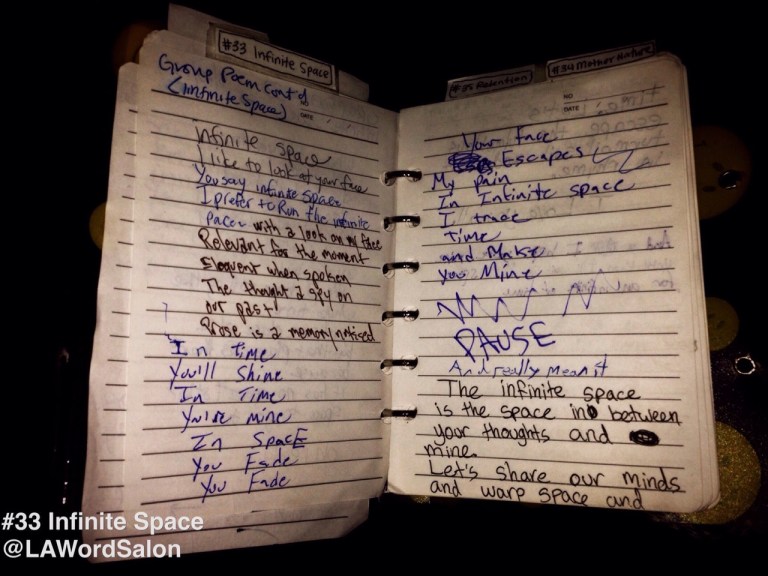 #33 Infinite Space
Group Poem cont'd
(Infinite Space)
DATE
Infinite space
I like to look at your face
You say infinite space
I prefer to Run the infinite
pacer with a look on face
Relevant for the moment
Eloquent when spoken
The thought a spy on
our past
Prose is a memory noticed
In time
You'll Shine
In Time
You're mine
In SpacE
You Fade
You Fade
#34 Mother Nature
NO
DATE
Your face
Escapes
My pain
In Infinite space
I trade
time
and Make
you Mine
PAUSE
And really mean it
The infinite space
is the space in between
your thoughts and
mine.
Let's share our minds
and warp space and
#33 Infinite Space
@LAWordSalon